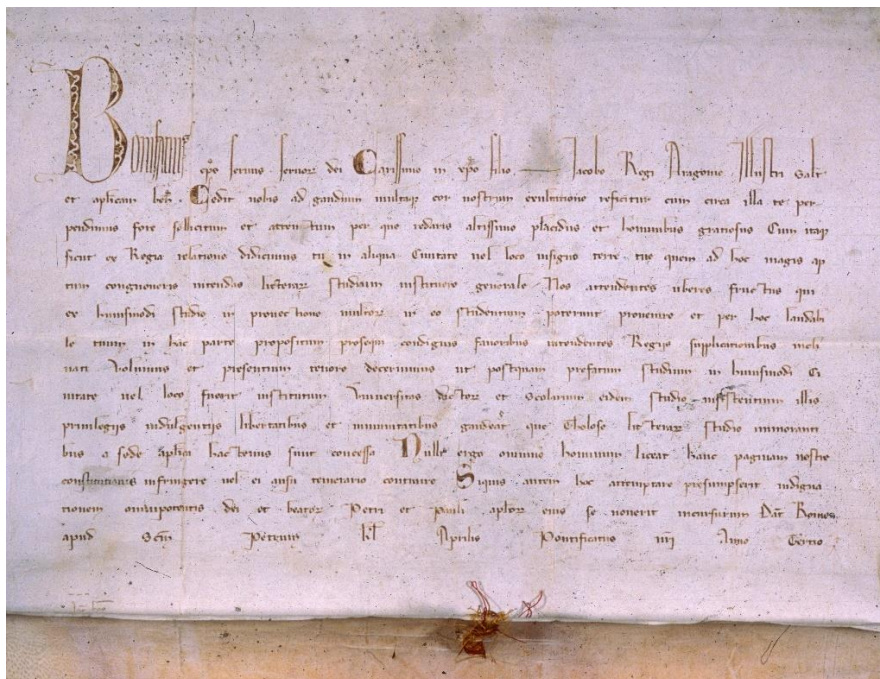 Bonifatius ep̅s servus servor̅ dei Carissimo in xp̅o filio Jacobo Regi Aragonie Illustri Salt̅
et aplicam ben̅. Cedit nobis ad gaudium multumq̅ cor nostrum exultatione reficitur cum circa illa te per
pendimus fore sollicitum et attentum per que redaris altissimo placidus et hominibus gratiosus Cum itaq̅
sicut ex Regia relatione didicimus tu in aliqua Civitate vel loco insigni terre tue quem ad hoc magis ap
tum congnoveris intendas litterar̅ studium instituere generale Nos attendentes uberes fructus qui
ex huiusmodi studio in provectione multor̅ in eo studentium poterunt provenire et per hoc laudabi
le tuum in hac parte propositum prosequi condignis favoribus intendentes Regiis supplicationibus incli
nati volumus et presentium tenore decernimus ut postquam prefatum studium in huiusmodi Ci
vitate vel loco fuerit institutum Universitas doctor̅ et Scolarium eidem studio insistentium illis
privilegiis indulgentiis libertatibus et immunitatibus gaudeat que Tholose litterar̅ studio immoranti
bus a sede aplica hactenus sunt concessa Nulli ergo omnino hominum liceat hanc paginam nostre
constitutionis infringere vel ei ausu temerario contraire Siquis autem hoc attemptare presumpserit indigna
tionem omnipotentis dei et beator̅ Petri et Pauli aplor̅ eius se noverit incursurum Dat̅ Rome
apud Scm̅ Petrum kl̅ Aprilis Pontificatus nri̅ Anno Tertio